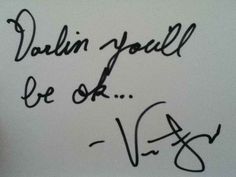 Darlin you'll
be ok...